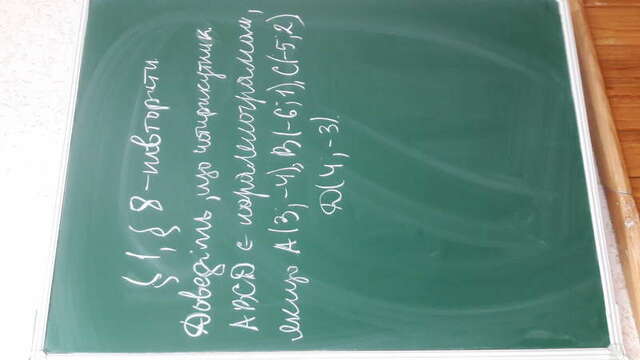 § 1, § 8 - повторити
Доведіть, що чотирикутник
ABCD є паралелограмом,
якщо A(3; -4), B(-6; 1), C(-5; 2)
D(4, -3).